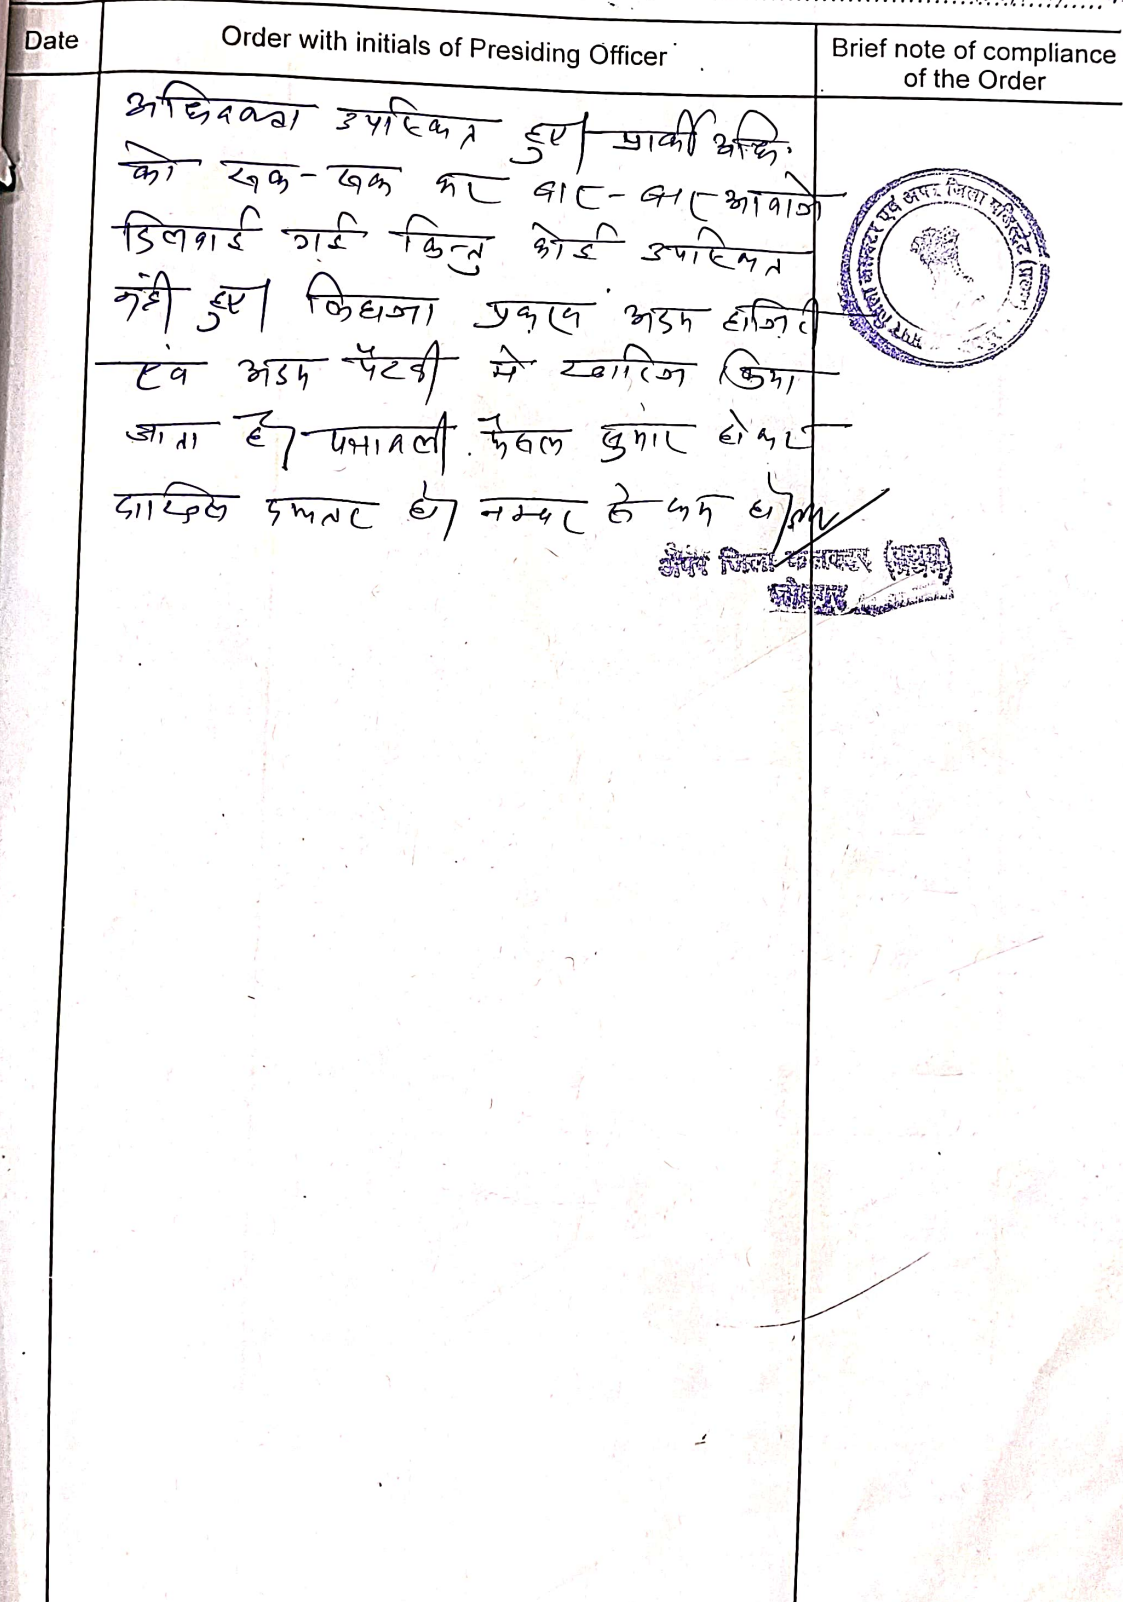 Date
Order with initials of Presiding Officer
Brief note of compliance
of the Order
अधिवक्ता उपस्थित हुए। प्रार्थी अधि.
को रूक-रूक कर बार-बार आवाजे
दिलवाई गई किन्तु कोई उपस्थित
नहीं हुए। लिहाजा प्रकरण अदम हाजिरी
एवं अदम पैरवी में खारिज किया
जाता है। पत्रावली फैसल शुमार होकर
दाखिल दफ्तर हो। नम्बर से कम हो।
अपर जिला कलक्टर एवं अपर जिला मजिस्ट्रेट (प्रथम)
अपर जिला कलक्टर (प्रथम)
जोधपुर